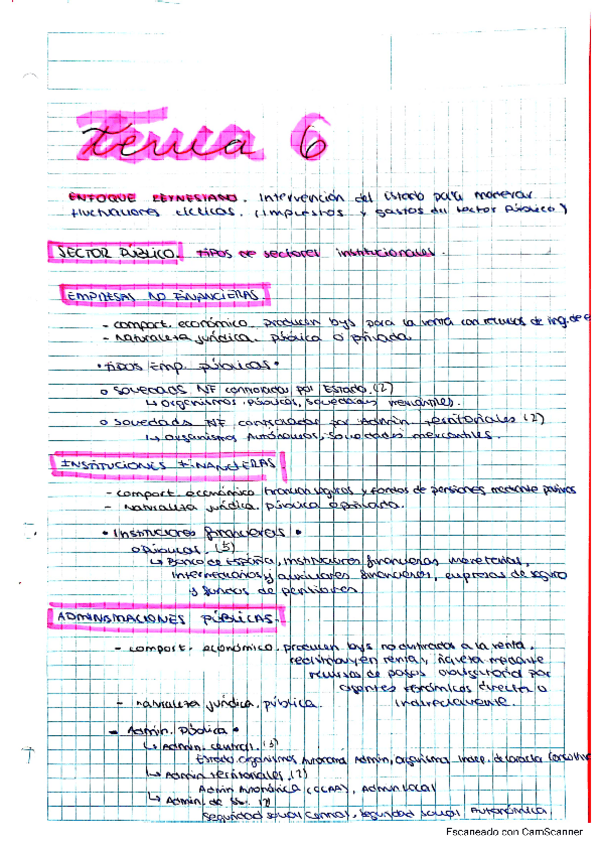 Tema 6
ENFOQUE KEYNESIANO. Intervención del Estado para
fluctuaciones cíclicas. (impuestos y gastos del sector Público)
SECTOR PÚBLICO. Tipos de sectores institucionales.
EMPRESAS NO FINANCIERAS.
- comport. económico. producen bys para la venta con recursos de ing. de
- naturaleza jurídica. pública o privada
• TIPOS Emp. Públicas •
o Sociedades NF controladas por Estado. (2)
↳ Organismos públicos, sociedades mercantiles.
o Sociedades NF controladas por Admin. territoriales (2)
↳ Organismos Autónomos, Sociedades mercantiles.
INSTITUCIONES FINANCIERAS
- comport. económico. y fondos de pensiones mediante pasivos
- naturaleza jurídica. pública o privada.
• Instituciones financieras •
o Públicas. (5)
↳ Banco de España, instituciones financieras monetarias,
intermediarios y auxiliares financieros, empresas de seguro
y fondos de pensiones.
ADMINISTRACIONES PÚBLICAS.
- comport. económico. producen bys no destinados a la venta,
redistribuyen renta y riqueza mediante
recursos de pagos obligatorios por
agentes económicos directa o
indirectamente.
- naturaleza jurídica. pública.
- Admin. Pública •
↳ Admin. central. (3)
Estado, organismos Autónomos Admin, organismos
↳ Admin territoriales. (2)
Admin Autonómica (CCAA), admin local
↳ Admin. de SS. (2)
Seguridad social central, seguridad social Autonómica.
Escaneado con CamScanner